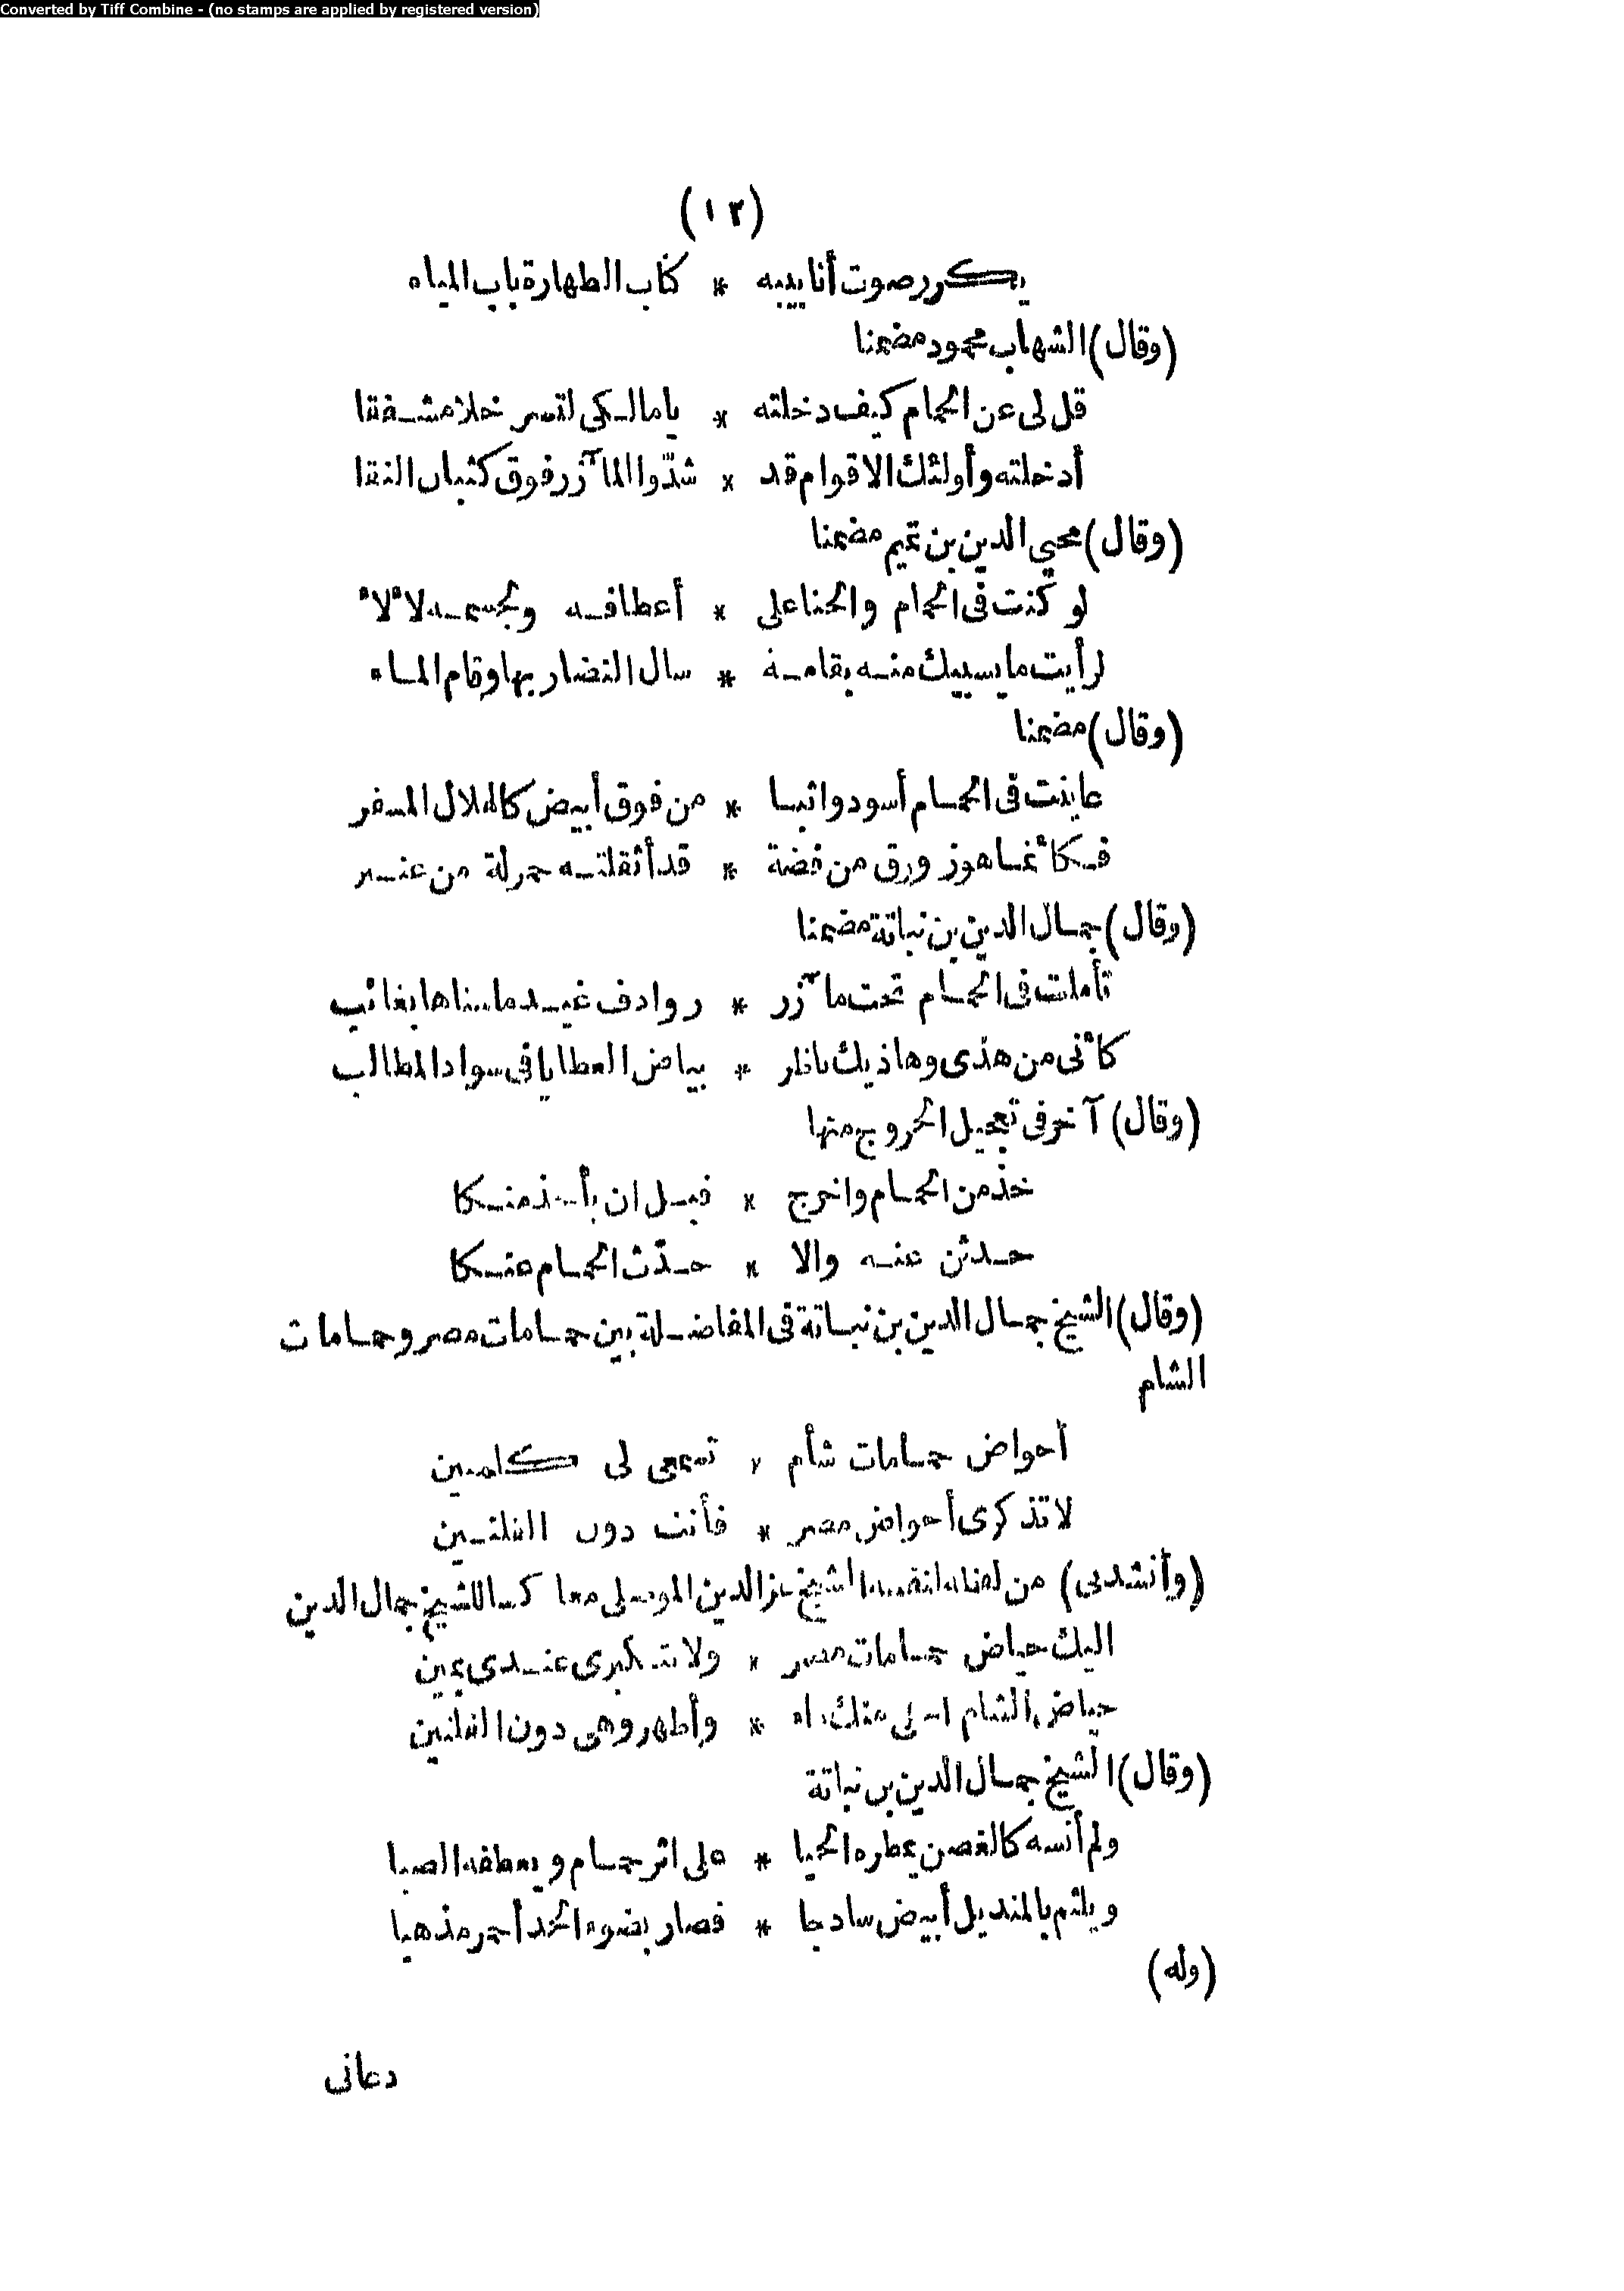 Converted by Tiff Combine - (no stamps are applied by registered version)
(١٢)
يكرر صوت أنابيبه * كتاب الطهارة باب المياه
(وقال) الشهاب محمود مضمنا
قل لى عن الحمام كيف دخلته * يا مالكى لتسر خلا مشفقا
أدخلته وأولئك الاقوام قد * شدّوا المآزر فوق كثبان النقا
(وقال) محيي الدين بن تميم مضمنا
لو كنت فى الحمام والحنا على * أعطافه ولجسمه لألاء
لرأيت ما يسبيك منه بقامة * سال النضار بها وقام الماء
(وقال) مضمنا
عاينت فى الحمام أسود واثبا * من فوق أبيض كالهلال المسفر
فكأنما هو زورق من فضة * قد أثقلته حمولة من عنبر
(وقال) جمال الدين بن نباتة مضمنا
تأملت فى الحمام تحت مآزر * روادف غيد ما سناها بغائب
كأنى من هذى وهاذيك ناظر * بياض العطايا فى سواد المطالب
(وقال) آخر فى تعجيل الخروج منها
خذ من الحمام واخرج * قبل ان يأخذ منكا
حدثن عنه والا * حدّث الحمام عنكا
(وقال) الشيخ جمال الدين بن نباتة فى المفاضلة بين حمامات مصر وحمامات
الشام
أحواض حمامات شأم * تسمعى لى كلمين
لا تذكرى أحواض مصر * فأنت دون القلتين
(وأنشدنى) من لفظه لنفسه الشيخ عز الدين الموصلى معاكسا للشيخ جمال الدين
اليك حياض حمامات مصر * ولا تتكبرى عندى بمين
حياض الشام احلى منك ماء * وأطهر وهى دون القلتين
(وقال) الشيخ جمال الدين بن نباتة
ولم أنسه كالغصن يمطره الحيا * على اثر حمام ويعطفه الصبا
ويلثم بالمنديل أبيض سادجا * فصار بضوء الخد أحمر مذهبا
(وله)
دعانى